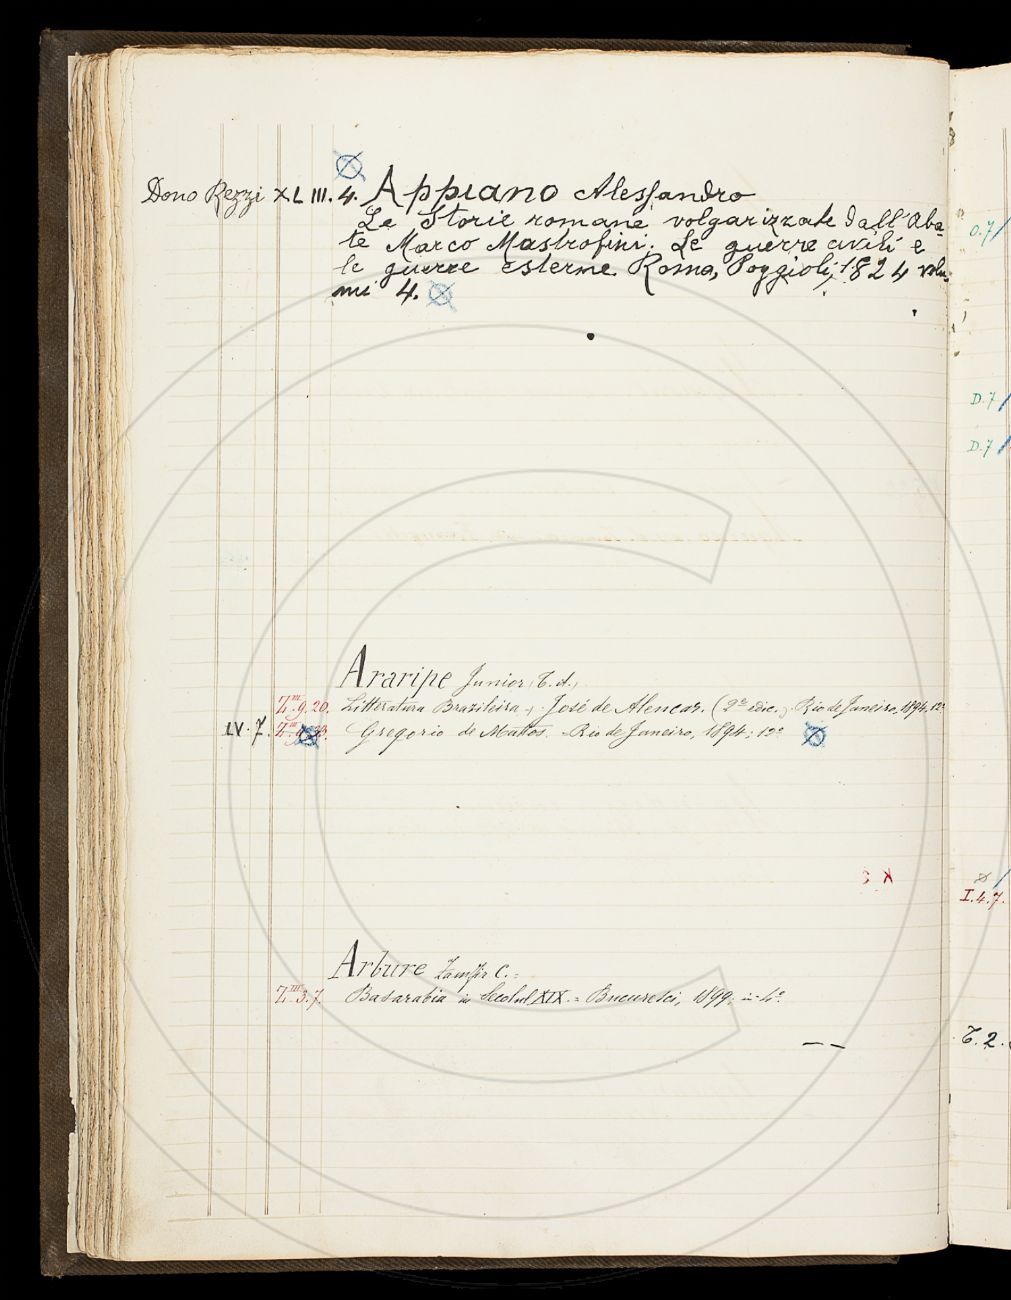 Dono Rezzi XLIII.4. Appiano Alessandro
Le Storie romane volgarizzate dall'Aba=
te Marco Mastrofini. Le guerre civili e
le guerre esterne. Roma, Poggioli, 1824 volu=
mi 4.
O.7
D.7
D.7
Araripe Junior, T. d.,
Z.III.9.20. Litteratura Brazileira. José de Alencar. (2ª edic.) Rio de Janeiro, 1894. 12º
LV.7. Gregorio de Mattos. Rio de Janeiro, 1894; 12º
I.4.7.
Arbure Zamfir C. =
Z.III.3.7. Basarabia in Secolul XIX. = Bucuresci, 1899. in-4º
T.2.